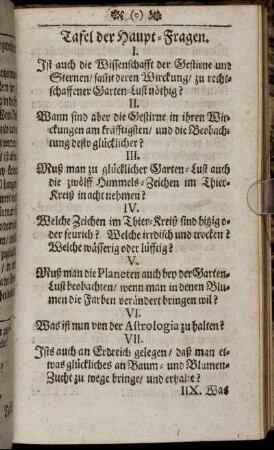 (o)
Tafel der Haupt-Fragen.
I.
Ist auch die Wissenschafft der Gestirne und
Sternen/ samt deren Wirckung/ zu recht-
schaffener Garten-Lust nöthig?
II.
Wann sind aber die Gestirne in ihren Wir-
ckungen am kräfftigsten/ und die Beobach-
tung desto glücklicher?
III.
Muß man zu glücklicher Garten-Lust auch
die zwölff Himmels-Zeichen im Thier-
Kreiß in acht nehmen?
IV.
Welche Zeichen im Thier-Kreiß sind hitzig o-
der feurich? Welche irrdisch und trocken?
Welche wässerig oder lüfftig?
V.
Muß man die Planeten auch bey der Garten-
Lust beobachten/ wenn man in denen Blu-
men die Farben verändert bringen wil?
VI.
Was ist nun von der Astrologia zu halten?
VII.
Ists auch an Erdreich gelegen/ daß man et-
was glückliches an Baum- und Blumen-
Zucht zu wege bringe/ und erhalte?
IIX. Was